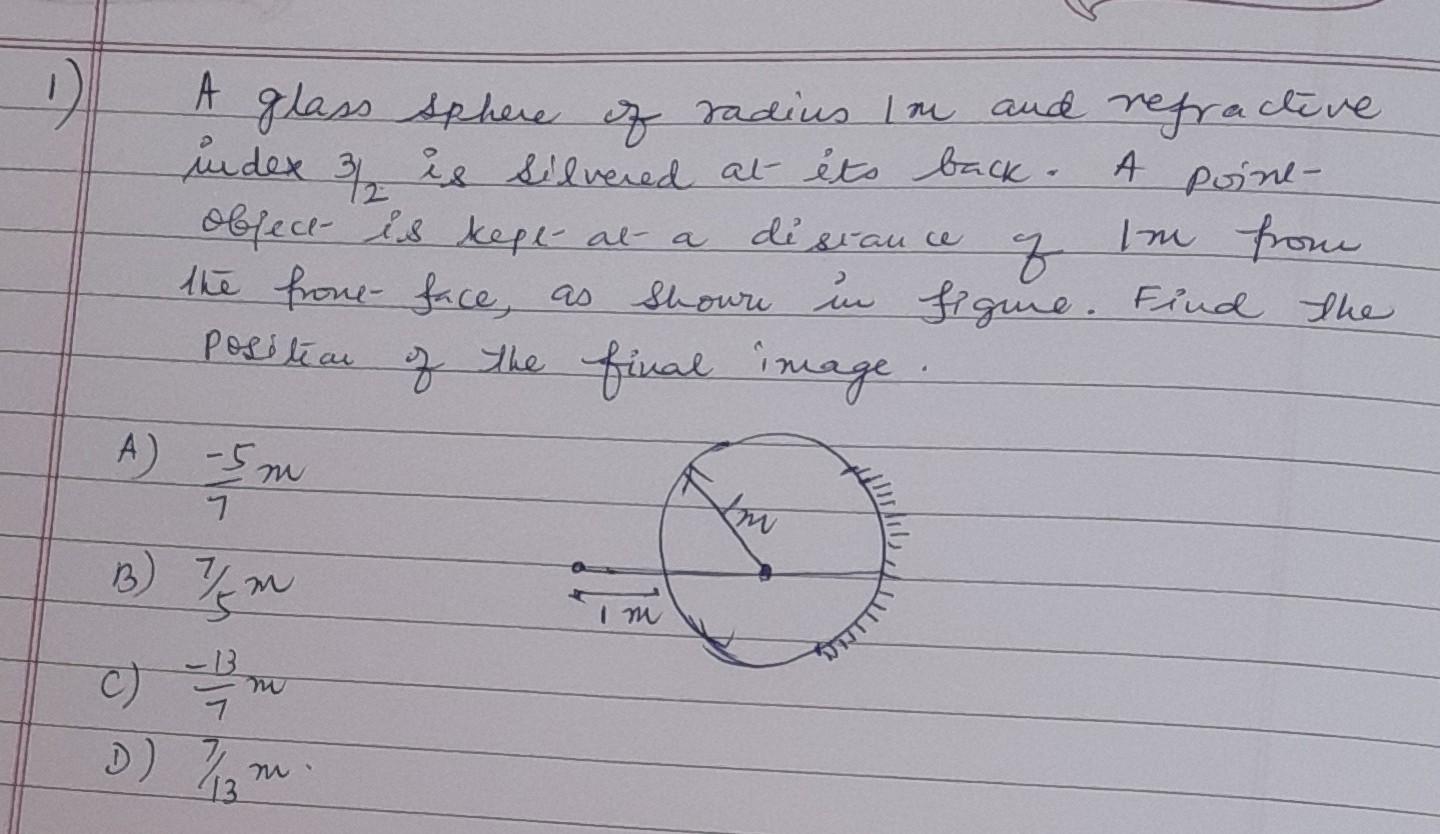 1) A glass sphere of radius 1m and refractive
index 3/2 is silvered at its back. A point
object is kept at a distance of 1m from
the front face, as shown in figure. Find the
position of the final image.
A) -5/7 m
1m
B) 7/5 m
1 m
C) -13/7 m
D) 7/13 m.